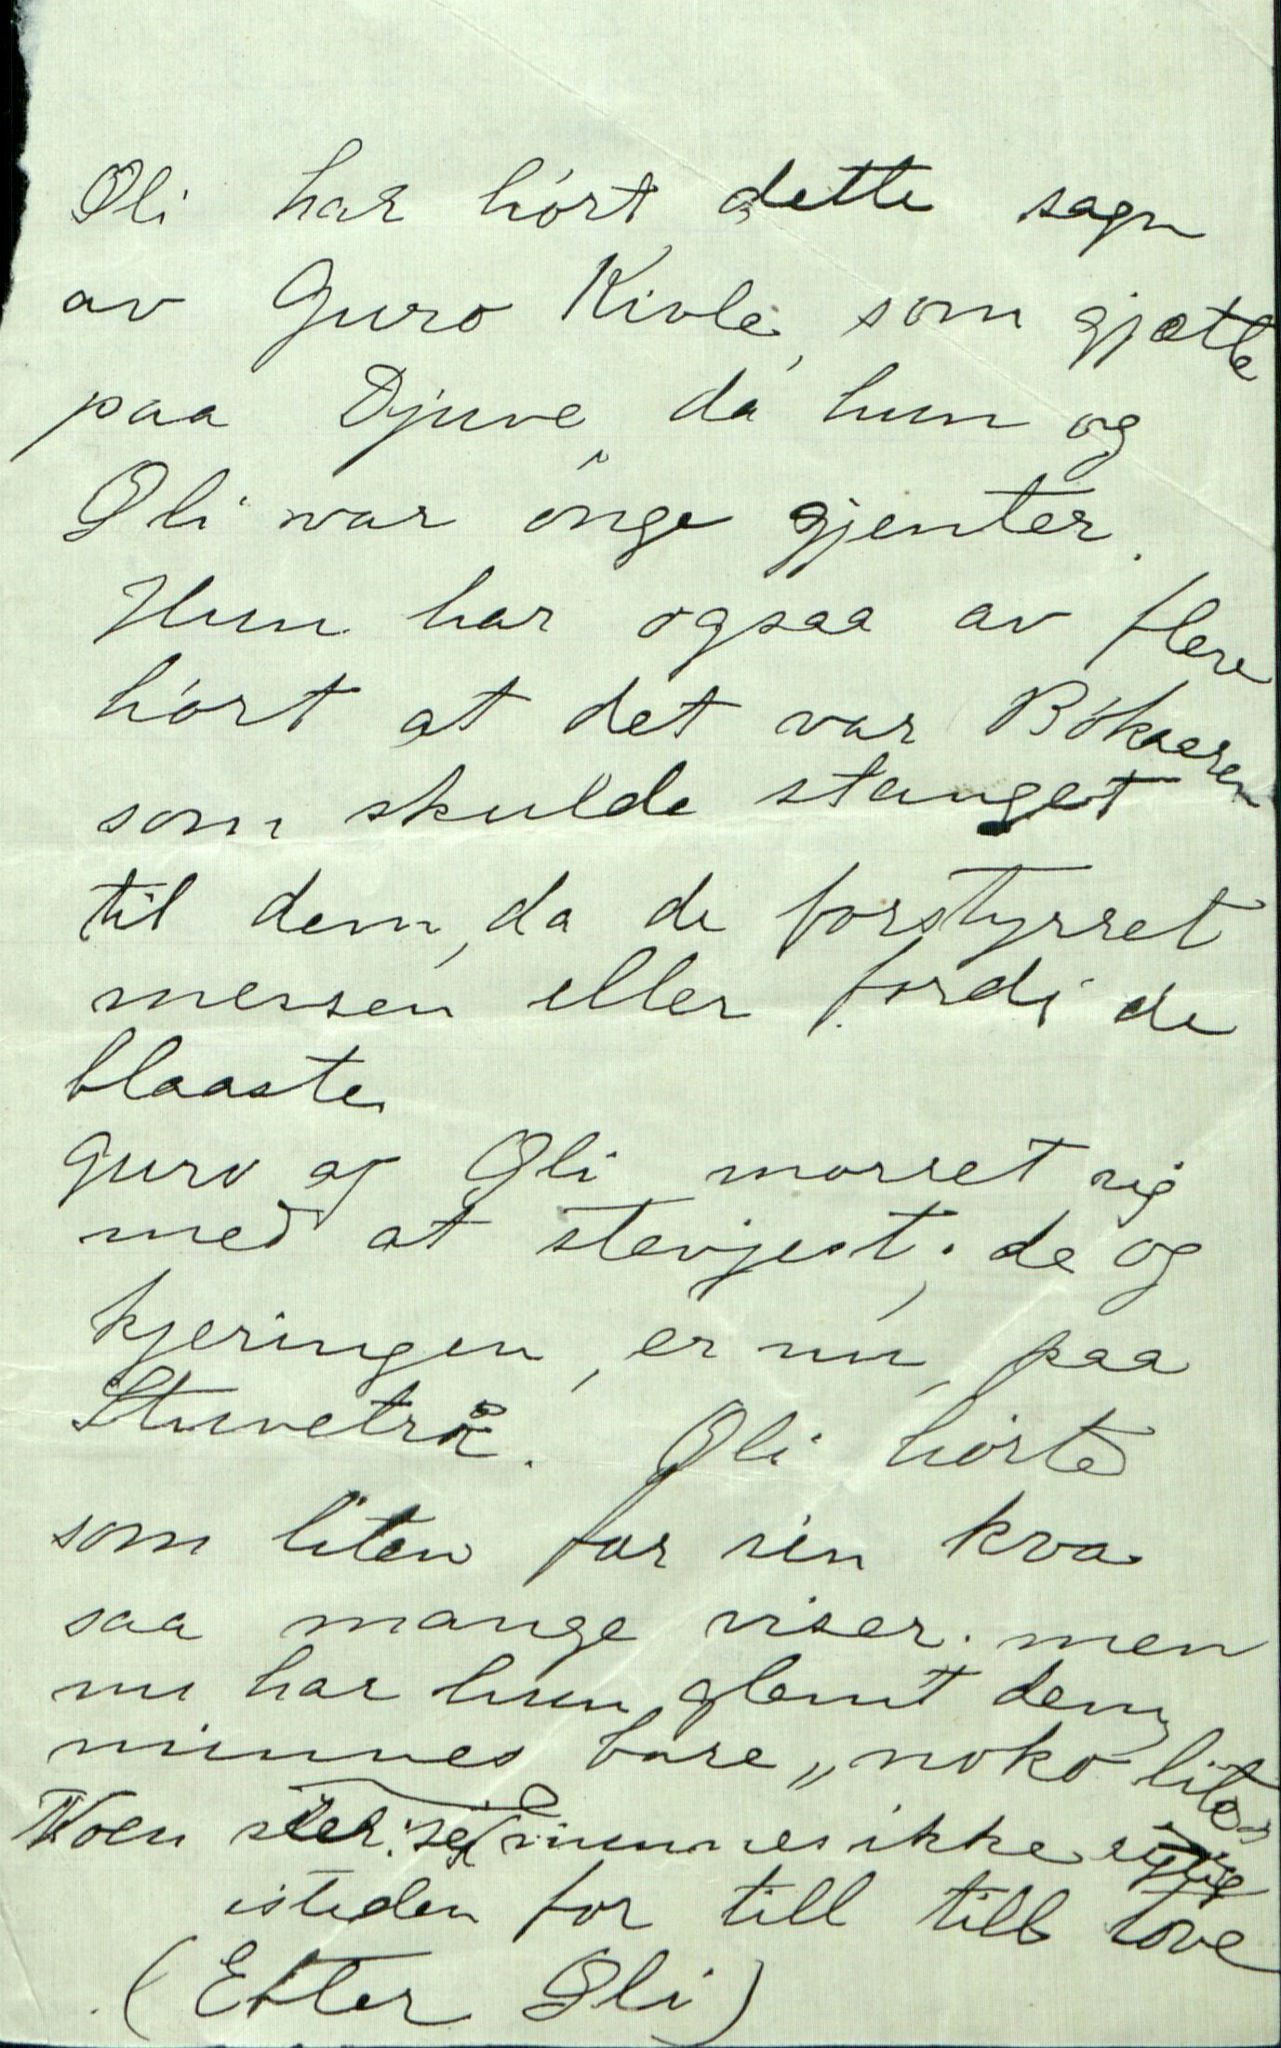 Oli har hört dette sagn
av Guro Kivle, som gjætte
paa Djuve, da hun og
Oli var önge gjenter.
Hun har ogsaa av flere
hört at det var Bökaeren
som skulde stanget
til dem, da de forstyrret
messen eller fordi de
blaaste
Guro og Oli morret sig
med at stevjest; de og
kjeringen, er nu, paa
Stuvetræ. Oli hörte
som liten far sin kva
saa mange viser. men
nu har hun glemt dem
minnes bare „noko liter
Noen minnes ikke
isteden for till till tove
(Etter Oli)